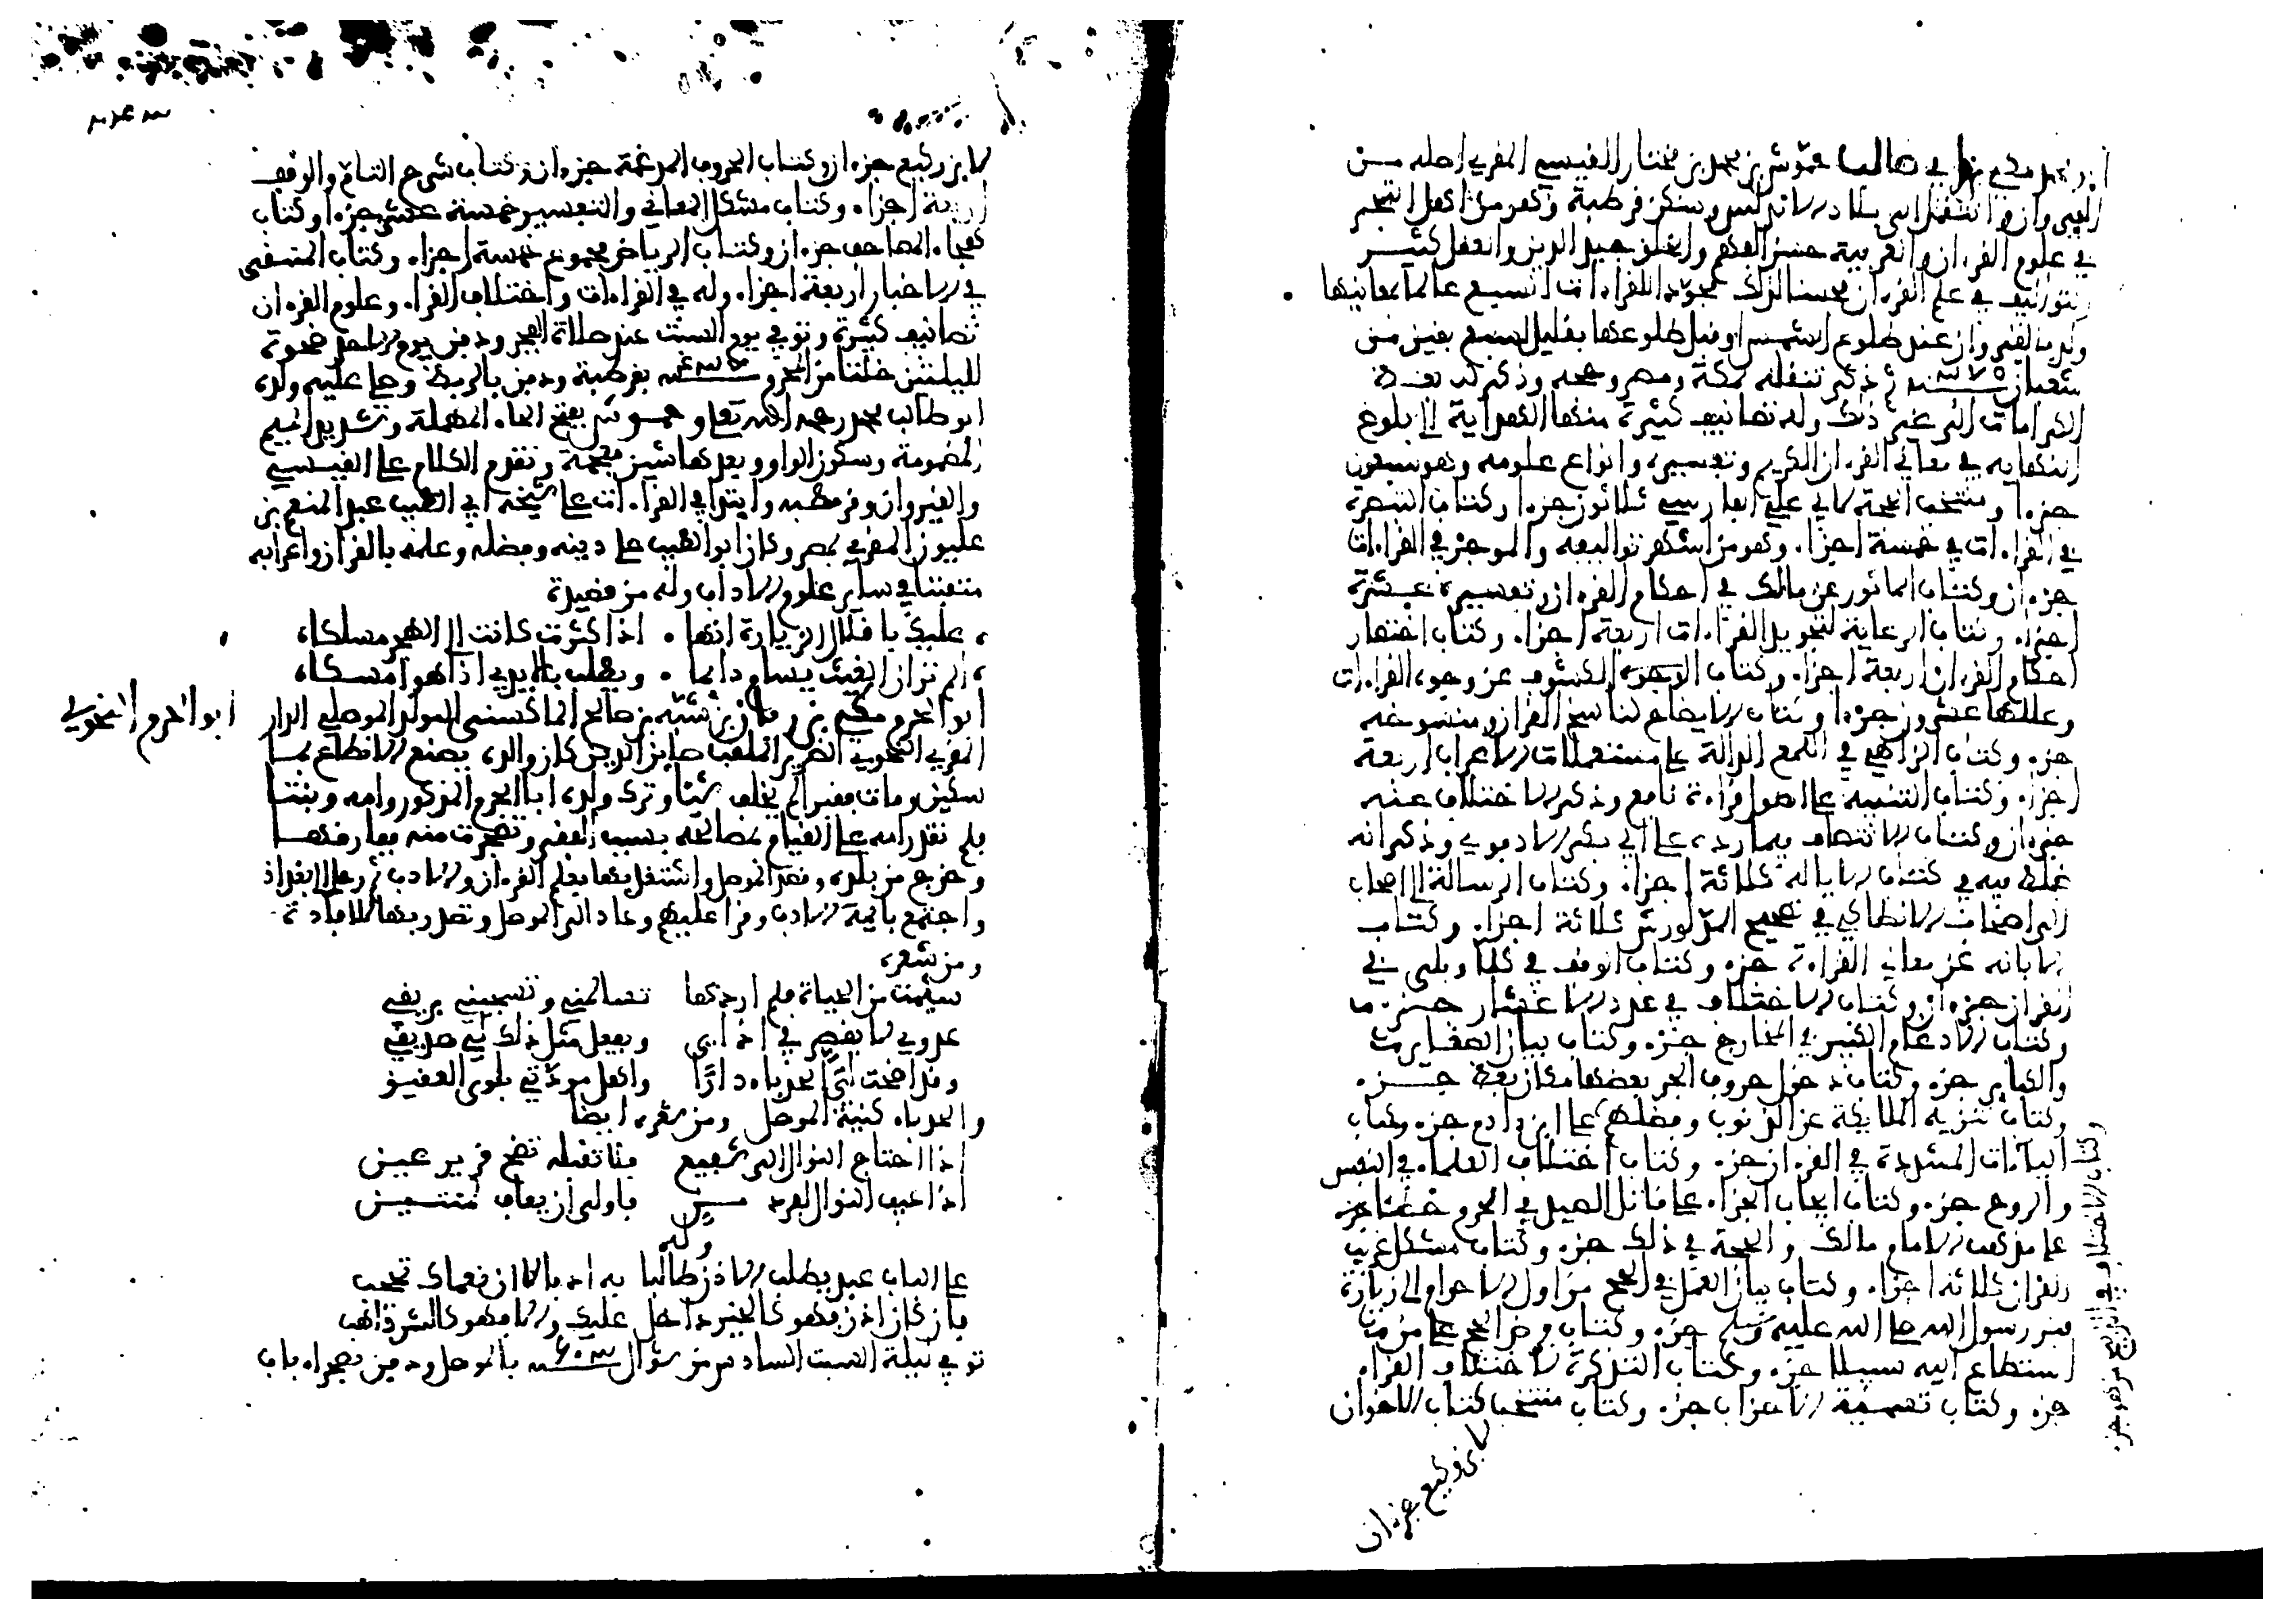 ابو محمد مكي بن ابي طالب حموش بن محمد بن مختار القيسي المقري اصله من
القيروان وانتقل الى بلاد الاندلس وسكن قرطبة وهو من اهل التبحر
في علوم القرءان والعربية حسن الفهم والخلق جيد الدين والعقل كثير
التواليف في علم القرءان محسنا لذلك مجودا للقراءات السبع عالما بمعانيها
ولد بالقيروان عند طلوع الشمس او قبل طلوعها بقليل لسبع بقين من
شعبان ثم ذكر تنقله بمكة ومصر وحجه وذكر له بعض
الكرامات الى غير ذلك وله تصانيف كثيرة منها الهداية الى بلوغ
النهاية في معاني القرءان الكريم وتفسيره وانواع علومه وهو سبعون
جزءا ومنتخب الحجة لابي علي الفارسي ثلاثون جزءا وكتاب التبصرة
في القراءات في خمسة اجزاء وهو من اشهر تواليفه والموجز في القراءات
جزءان وكتاب الماثور عن مالك في احكام القرءان وتفسيره عشرة
اجزاء وكتاب الرعاية لتجويد القراءات اربعة اجزاء وكتاب اختصار
احكام القرءان اربعة اجزاء وكتاب الكشوف عن وجوه القراءات
وعللها عشرون جزءا وكتاب الايضاح لناسخ القرءان ومنسوخه
جزء وكتاب الزاهي في اللمع الدالة على مستعملات الاعراب اربعة
اجزاء وكتاب التنبيه على اصول قراءة نافع وذكر الاختلاف عنه
جزءان وكتاب الانتصاف فيما رده على ابي بكر الادفوي وذكر انه
غلط فيه في كتاب الابانه ثلاثة اجزاء وكتاب الرسالة الى اصحاب
الانطاكي في تصحيح المد لورش ثلاثة اجزاء وكتاب
الابانه عن معاني القراءة جزء وكتاب الوقف في كلا وبلى في
القرءان جزءان وكتاب الاختلاف في عدد الاعشار جزء
وكتاب الادغام الكبير في المخارج جزء وكتاب بيان الصغاير
والكباير جزء وكتاب دخول حروف الجر بعضها مكان بعض جزء
وكتاب تنزيه الملايكة عن الذنوب وفضلهم على ابن ءادم جزء وكتاب
الياءات المشددة في القرءان جزء وكتاب اختلاف العلماء في النفس
والروح جزء وكتاب ايجاب الجزاء على قاتل الصيد في الحرم جزء
على مذهب الامام مالك والحجة في ذلك جزء وكتاب مشكل غريب
القرءان ثلاثة اجزاء وكتاب بيان العمل في الحج من اول الاحرام الى زيارة
قبر رسول الله صلى الله عليه وسلم جزء وكتاب فرض الحج على من
استطاع اليه سبيلا جزء وكتاب التذكرة لاختلاف القراء
جزء وكتاب تسمية الاحزاب جزء وكتاب منتخب كتاب الاخوان
لابن وكيع جزءان
وكتاب الاختلاف في الذبيح من هو جزء
لابن وكيع جزءان وكتاب الحروف المدغمة جزءان وكتاب شرح التمام والوقف
اربعة اجزاء وكتاب مشكل المعاني والتفسير خمسة عشر جزءا وكتاب
هجاء المصاحف جزءان وكتاب الرياض مجموع خمسة اجزاء وكتاب المنتقى
في الاخبار اربعة اجزاء وله في القراءات واختلاف القراء وعلوم القرءان
تصانيف كثيرة وتوفي يوم السبت عند صلاة الفجر ودفن يوم الاحد ضحوة
لليلتين خلتا من المحرم بقرطبة ودفن بالربض وصلى عليه ولده
ابو طالب محمد رحمه الله تعلى وحموش بفتح الحاء المهملة وتشديد الميم
المضمومة وسكون الواو وبعدها شين معجمة وتقدم الكلام على القيسي
والقيروان وقرطبه وابتدا في القراءات على شيخه ابي الطيب عبد المنعم بن
غلبون المقري بمصر وكان ابو الطيب على دينه وفضله وعلمه بالقرءان واعرابه
متفننا في ساير علوم الاداب وله من قصيدة
عليك باقلال الزيارة انها اذا كثرت كانت الى الهجر مسلكا
الم تر ان الغيث يسام دايما ويطلب بالايدي اذا هو امسكا
ابو الحرم النحوي
ابو الحرم مكي بن ريان بن شبة بن صالح الماكسني المولد الموصلي الدار
المقري النحوي الضرير الملقب صاين الدين كان والده يصنع الانطاع بما
سكين ومات فقيرا لم يخلف شيئا وترك ولده ابا الحرم المذكور وامه وبنتا
فلم تقدر امه على القيام بمصالحه بسبب الفقر وتضجرت منه ففارقها
وخرج من بلده وقصد الموصل واشتغل بها بعلم القرءان والادب ثم رحل الى بغداذ
واجتمع بايمة الادب وقرا عليهم وعاد الى الموصل وتصدر بها للافادة
ومن شعره
سئمت من الحياة فلم اردها تسالمني وتشجيني بريقي
عدوي لا يقصر في اذايى ويفعل مثل ذلك بي صديقي
وقد اضحت لي الحدباء دارا واهل مودتي بلوى العقيق
والحدباء كنية الموصل ومن شعره ايضا
اذا احتاج النوال الى شفيع فلا تقبله تضح قرير عين
اذا عيف النوال لفرد من فاولى ان يعاف لمنتين
وله
على الباب عبد يطلب الاذن طالبا به ادبا لا ان نعماك تحجب
فان كان اذن فهو كالخير داخل عليك والا فهو كالشر ذاهب
توفي ليلة السبت السادس من شوال بالموصل ودفن بصحراء باب